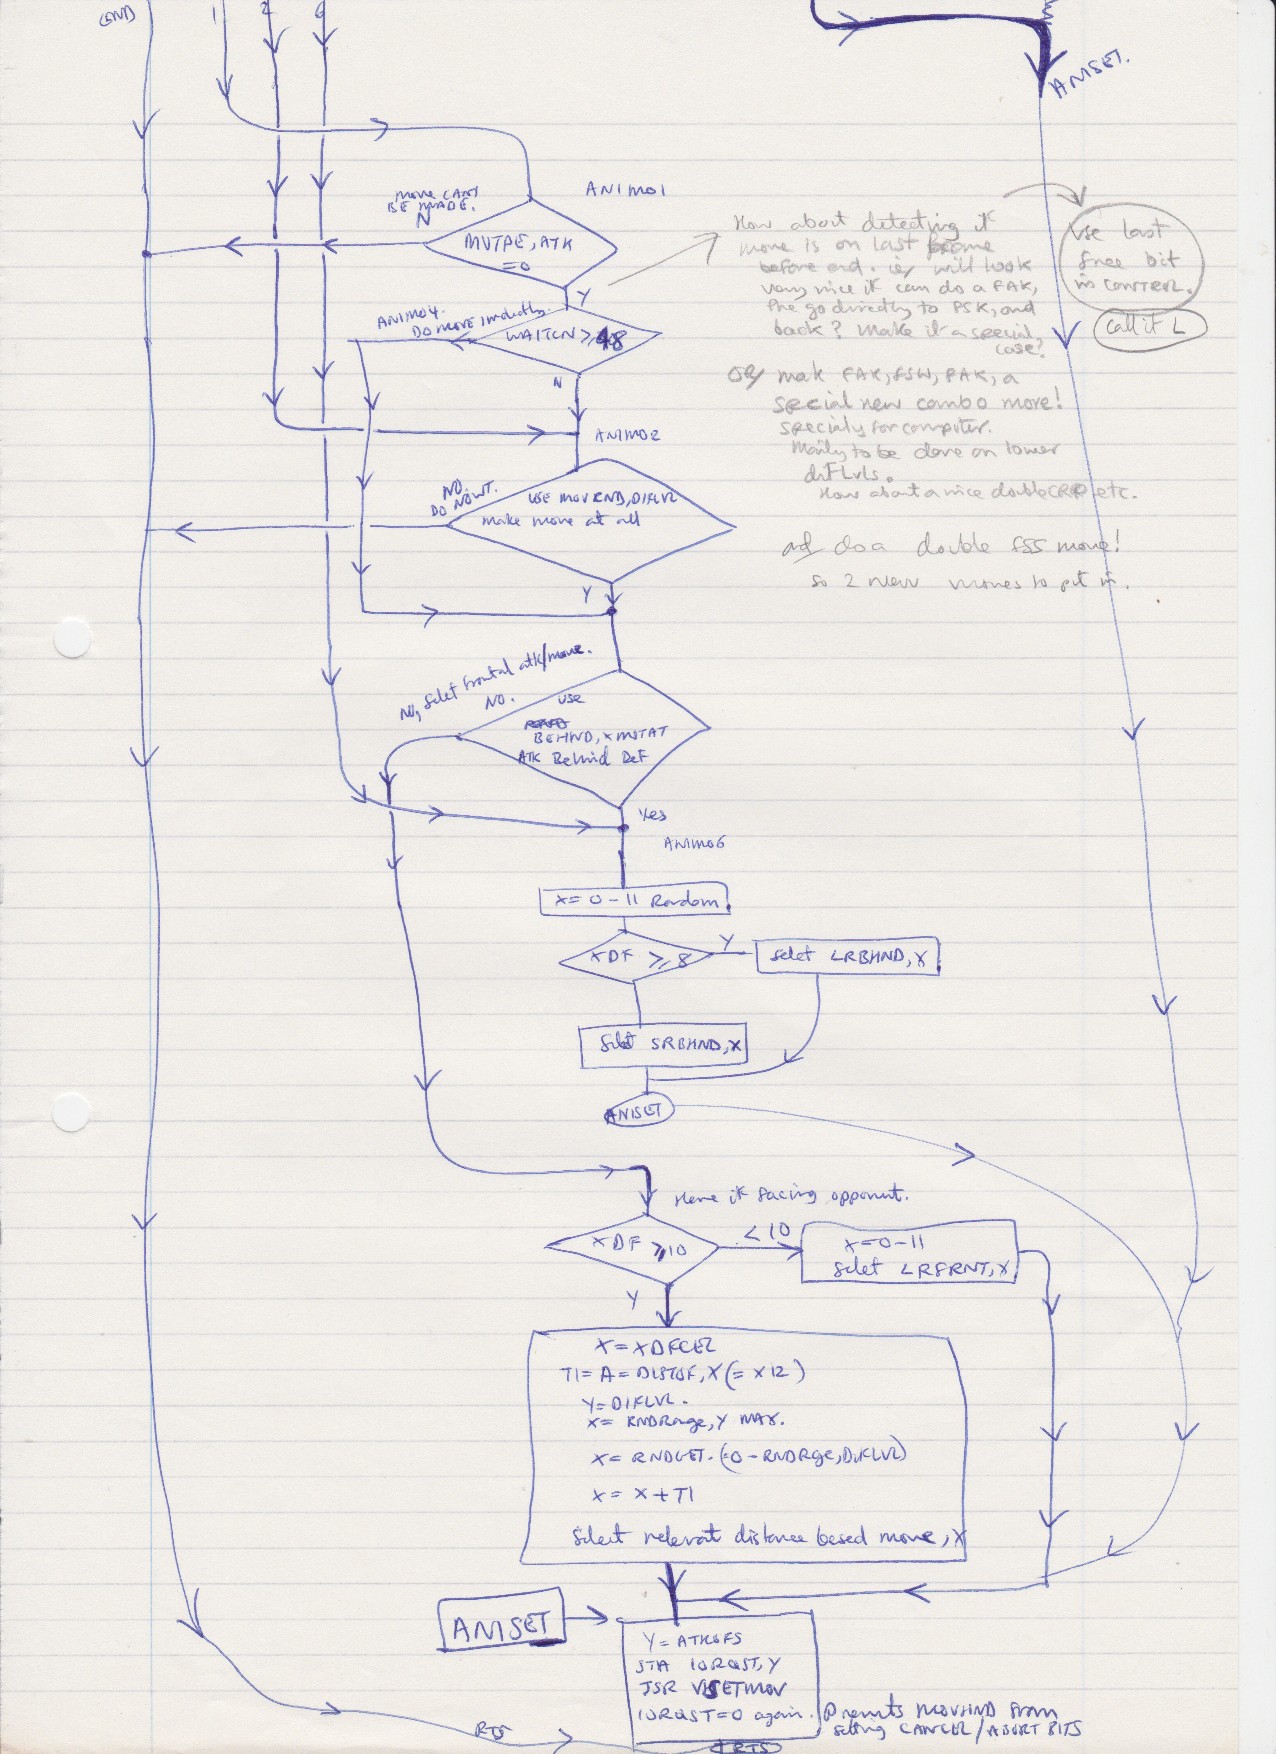 (END) 1 2 6
ANISET.
ANIM01
MOVE CANT
BE MADE.
N
MVTPE, ATK
=0
Y
How about detecting if
move is on last frame
before end. ie, will look
very nice if can do a FAK,
the go directly to PSK, and
back? Make it a special
case?
Use last
free bit
in CONTROL.
call it L
ANIM04.
DO MOVE immediatly.
WAITCN ≥ 48
N
or mak FAK, FSW, FAK, a
special new combo move!
specialy for computer.
Mainly to be done on lower
difLvls.
How about a nice double CRP etc.
ANIM02
NO.
DO NOWT.
USE MOVRND, DIFLVL
make move at all
Y
and do a double FSS move!
so 2 new moves to put in.
NO, Selet frontal atk/move.
NO.
use
BEHND, XMSTAT
ATK Behind DEF
Yes
ANIM06
X= 0-11 Random.
XDF ≥ 8
Y
Selet LRBHND, X
Selet SRBHND, X
ANISET
Here if facing opponent.
XDF ≥ 10
<10
X=0-11
Selet LRFRNT, X
Y
X = XDFCER
T1= A= DISTOF, X (= X12)
Y= DIFLVL.
X= RNDRnge, Y MAX.
X= RNDGET. (=0 - RNDRge, DIFLVL)
X= X+T1
Select relevat distance based move, X
ANISET
Y= ATKOFS
STA IORQST, Y
JSR VSETMOV
IORQST=0 again.
Prevents MOVHND from
setting CANCEL/ABORT BITS
RTS
RTS